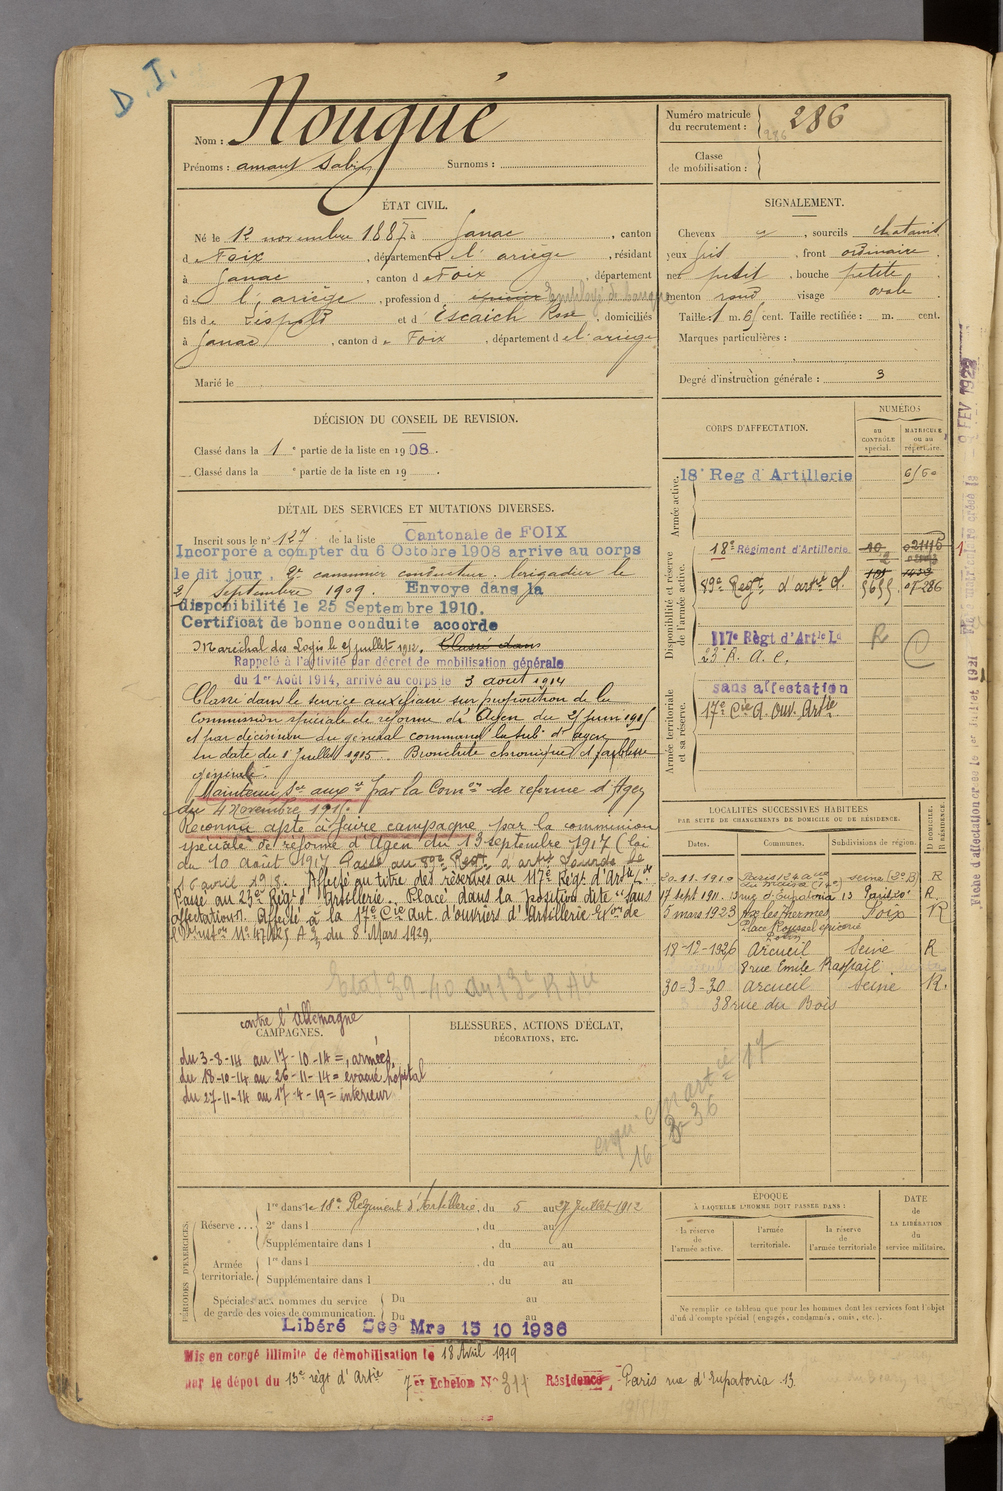 D. I.
Nom : Nougué
Prénoms : amant Sabin Surnoms :
Numéro matricule du recrutement : 286
286
Classe de mobilisation :
ÉTAT CIVIL.
Né le 12 novembre 1887, à Ganac, canton
de Foix, département de l'ariège, résidant
à Ganac, canton de Foix, département
de l'ariège, profession d épicier Employé de banque
fils de Léopold et d' Escaich Rose, domiciliés
à Ganac, canton de Foix, département de l'ariège
Marié le
SIGNALEMENT.
Cheveux , sourcils chatains
yeux gris, front ordinaire
nez petit, bouche petite
menton rond visage ovale
Taille : 1 m. 65 cent. Taille rectifiée : m. cent.
Marques particulières :
Degré d'instruction générale : 3
DÉCISION DU CONSEIL DE REVISION.
Classé dans la 1 e partie de la liste en 1908.
Classé dans la e partie de la liste en 19 .
DÉTAIL DES SERVICES ET MUTATIONS DIVERSES.
Inscrit sous le n° 127 de la liste Cantonale de FOIX
Incorporé à compter du 6 Octobre 1908 arrive au corps
le dit jour, 2e canonnier conducteur. brigadier le
25 Septembre 1909. Envoyé dans la
disponibilité le 25 Septembre 1910.
Certificat de bonne conduite accordé
Maréchal des Logis le 25 juillet 1912. Classé dans
Rappelé à l'activité par décret de mobilisation générale
du 1er Août 1914, arrivé au corps le 3 aout 1914
Classé dans le service auxiliaire sur proposition de la
Commission spéciale de réforme d'Agen du 25 juin 1915
et par décision du général command la sub. d'agen
en date du 1er Juillet 1915. Bronchite chronique et faiblesse
générale.
Maintenu Sce auxre par la Comon de reforme d'Agen
du 4 Novembre 1915.
Reconnu apte à faire campagne par la commission
spéciale de réforme d'Agen du 13 septembre 1917 (Loi
du 10 août 1917. Passé au 89e Regt d'artie Lourde le
16 avril 1918. Affecté au titre des réserves au 117e Régt d'Artie Lde
Passé au 23e Régt d'Artillerie. Placé dans la position dite "sans
affectation". Affecté à la 17e Cie aut. d'ouvriers d'Artillerie Exon de
l'Instron No 47025 A 2 du 8 Mars 1929.
Etat 39-40 du 13e R A
CORPS D'AFFECTATION.
NUMÉROS
au CONTRÔLE spécial.
MATRICULE ou au répertoire.
Armée active.
18e Reg d'Artillerie 6160
Disponibilité et réserve de l'armée active.
18e Régiment d'Artillerie
89e Regt d'artie L.
117e Règt d'Artie Lde R
23e R. A. C.
Armée territoriale et sa réserve.
sans affectation
17e Cie A. ouv. Artie
LOCALITÉS SUCCESSIVES HABITÉES
PAR SUITE DE CHANGEMENTS DE DOMICILE OU DE RÉSIDENCE.
Dates. Communes. Subdivisions de région. D DOMICILE. R RÉSIDENCE.
20.11.1910 Paris 124 avenue du maine (14e) Seine (3eB) R
17 sept 1911. 13 rue d'Eupatoria 13 Paris 20e R.
5 mars 1923 Ax les Thermes Foix R
Place Roussel épicerie
18-12-1926 Arcueil Seine R
8 rue Emile Raspail
30-3-30 Arcueil Seine R.
38 rue du Bois
contre l'Allemagne
CAMPAGNES.
du 3-8-14 au 17-10-14 = armées
du 18-10-14 au 26-11-14 = évacué hôpital
du 27-11-14 au 17-4-19 = intérieur
BLESSURES, ACTIONS D'ÉCLAT, DÉCORATIONS, ETC.
16-3-36
PÉRIODES D'EXERCICES.
Réserve . . . 1re dans le 18e Régiment d'Artillerie, du 5 au 27 Juillet 1912
2e dans l , du au
Supplémentaire dans l , du au
Armée territoriale. 1re dans l , du au
Supplémentaire dans l , du au
Spéciales aux hommes du service de garde des voies de communication.
Du au
Du au
Libéré Sce Mre 15 10 1936
ÉPOQUE
À LAQUELLE L'HOMME DOIT PASSER DANS :
la réserve de l'armée active.
l'armée territoriale.
la réserve de l'armée territoriale
DATE de LA LIBÉRATION du service militaire.
Ne remplir ce tableau que pour les hommes dont les services font l'objet
d'un décompte spécial (engagés, condamnés, omis, etc.).
Mis en congé illimité de démobilisation le 18 Avril 1919
par le dépôt du 13e règt d'Artie 7er Echelon No 311 Résidence Paris rue d'Eupatoria 13.